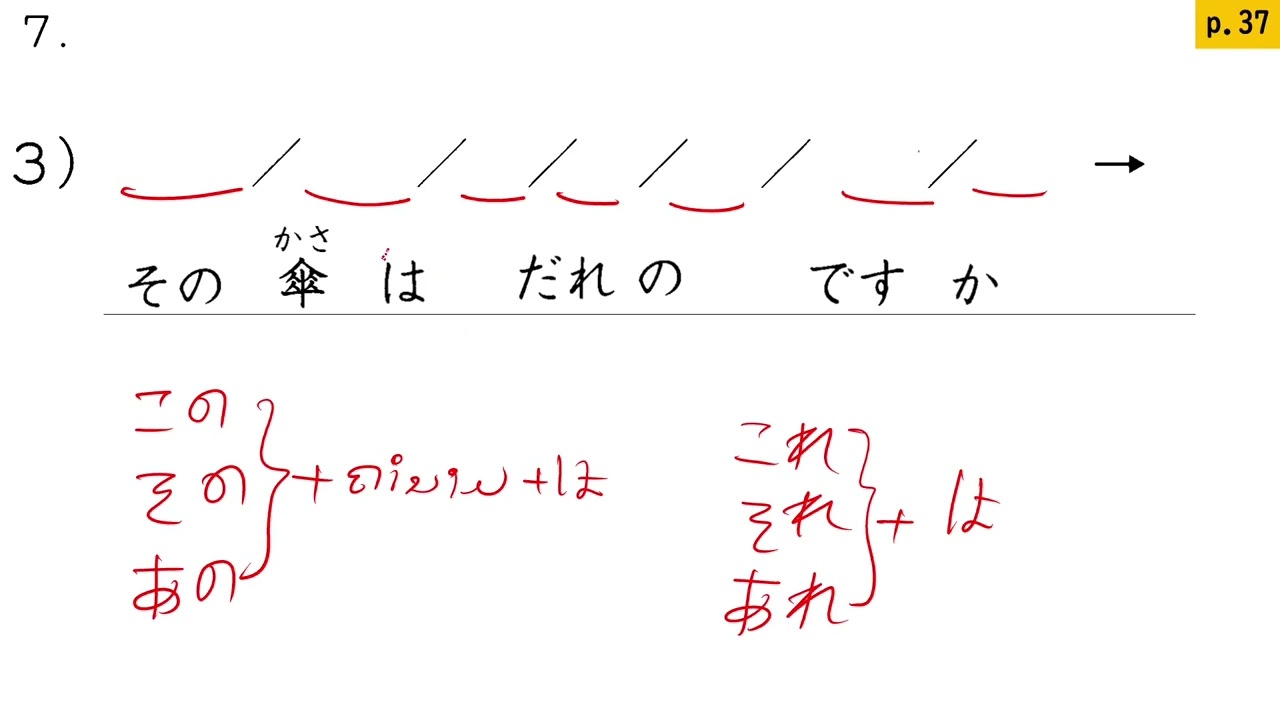 7.
p.37
3) / / / / / / →
かさ
その 傘 は だれ の です か
この
その + + は
あの
これ
それ + は
あれ